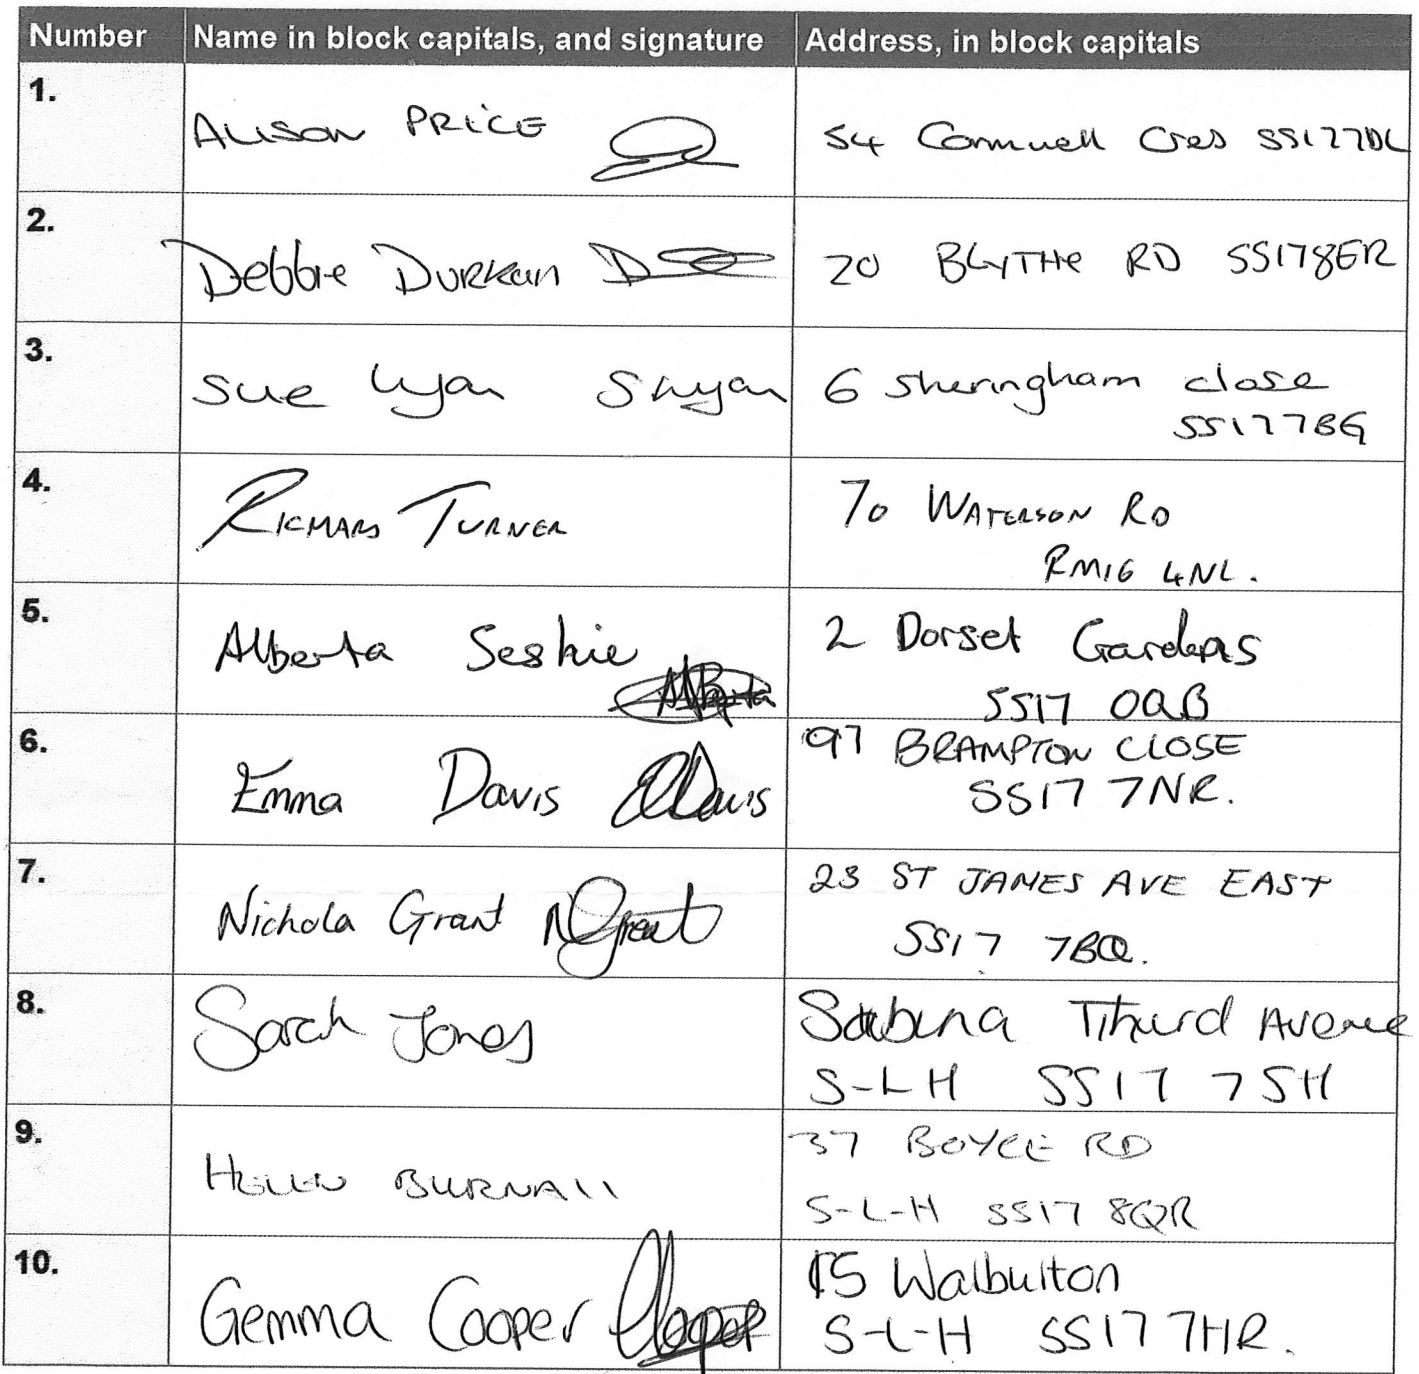 Number Name in block capitals, and signature Address, in block capitals
1. ALISON PRICE 54 Cromwell Cres SS177DL
2. Debbie DURKan 20 BLYTHe RD SS178ER
3. Sue Lyan Slyan 6 Sheringham close
SS177BG
4. RICHARD TURNER 70 WATERSON RD
RM16 4NL.
5. Alberta Seskie 2 Dorset Gardens
Alberta SS17 0QB
6. Emma Davis EDavis 97 BRAMPTON CLOSE
SS17 7NR.
7. Nichola Grant NGrant 23 ST JAMES AVE EAST
SS17 7BQ.
8. Sarah Jones Sabina Avenue
S-L-H SS17 7SH
9. HELEN BURNAll 37 BOYCE RD
S-L-H SS17 8QR
10. Gemma Cooper Cooper 15 Walbulton
S-L-H SS17 7HR.